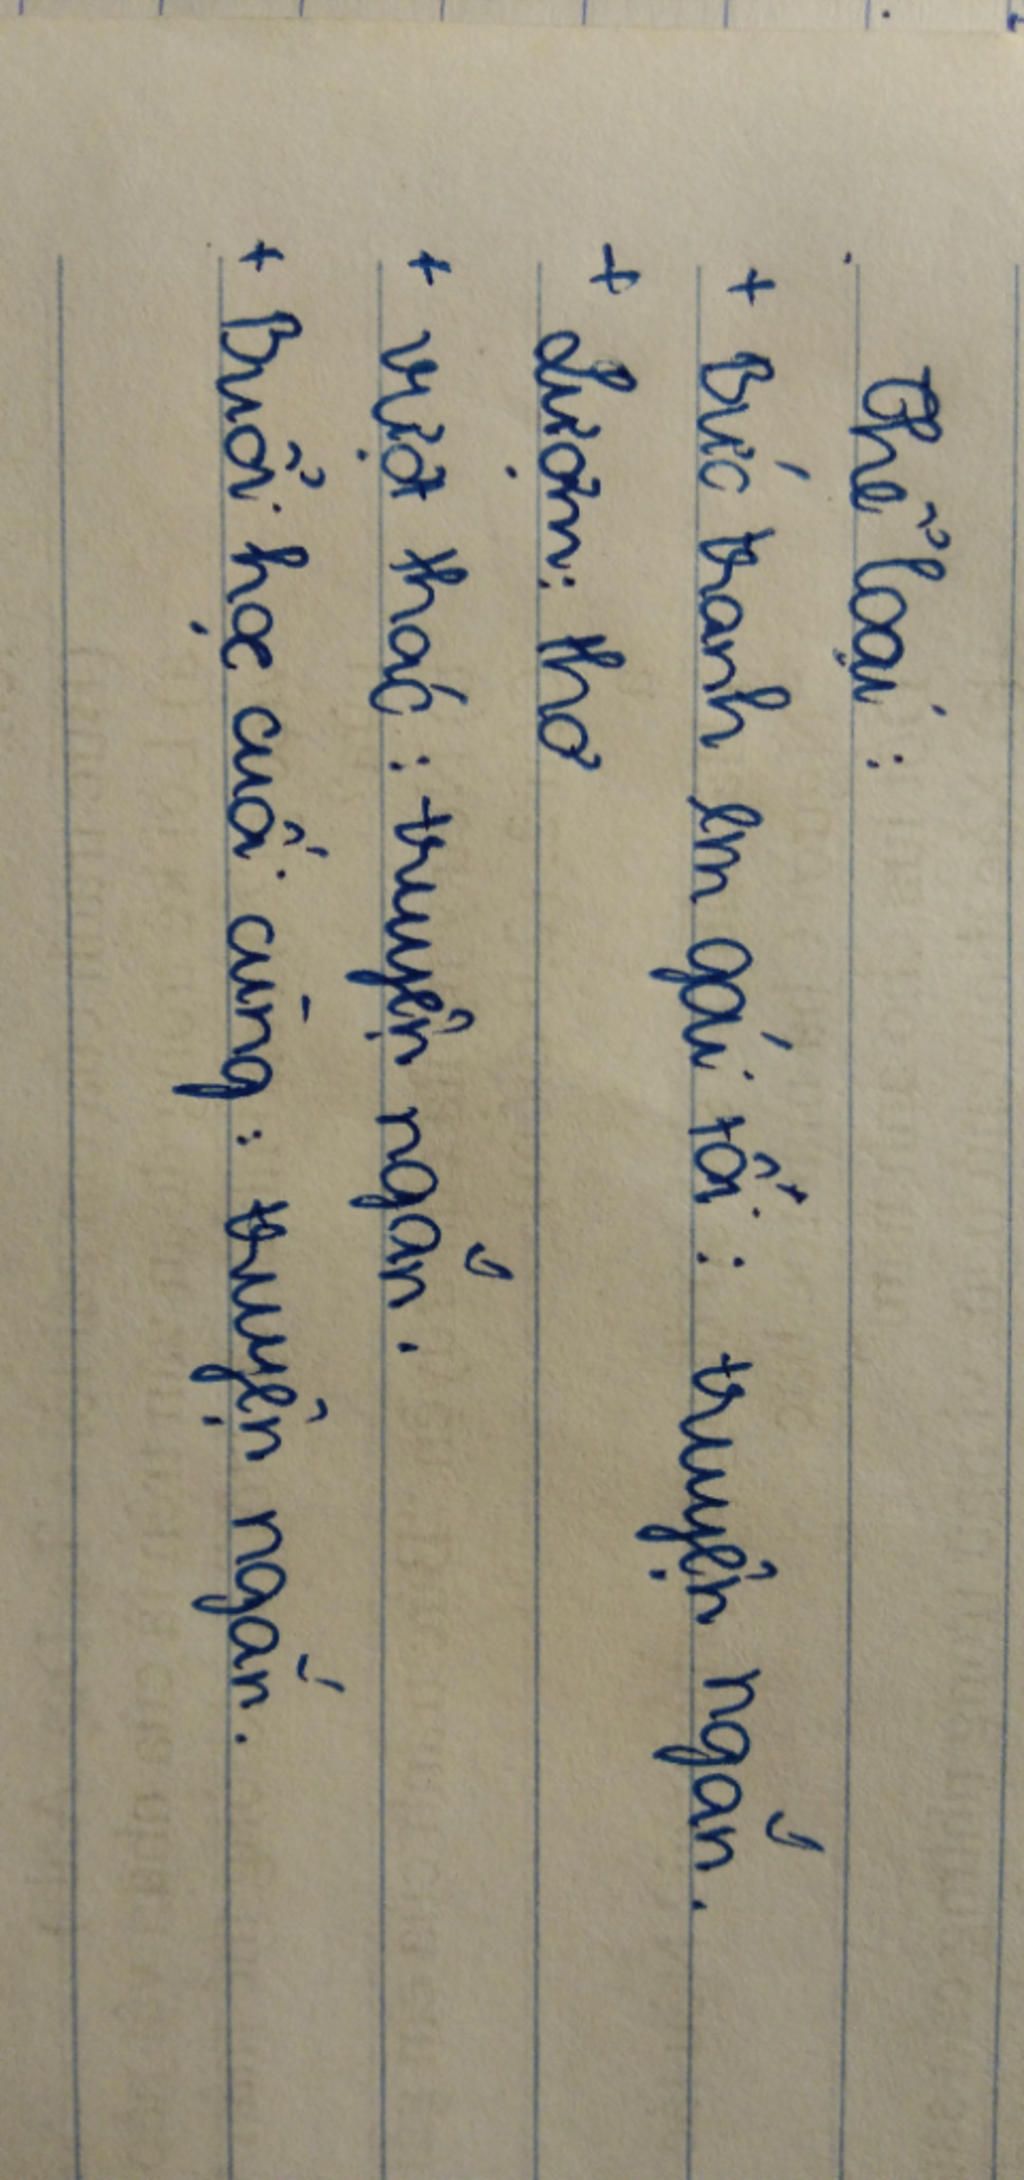 Thể loại:
+ Bức tranh em gái tôi: truyện ngắn.
+ Lượm: thơ
+ vượt thác: truyện ngắn.
+ Buổi học cuối cùng: truyện ngắn.